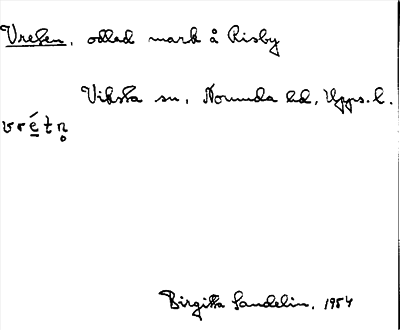 Vreten, odlad mark å Risby
Viksta sn, Norunda hd, Upps. l.
vrétn̥
Birgitta Sandelin, 1954